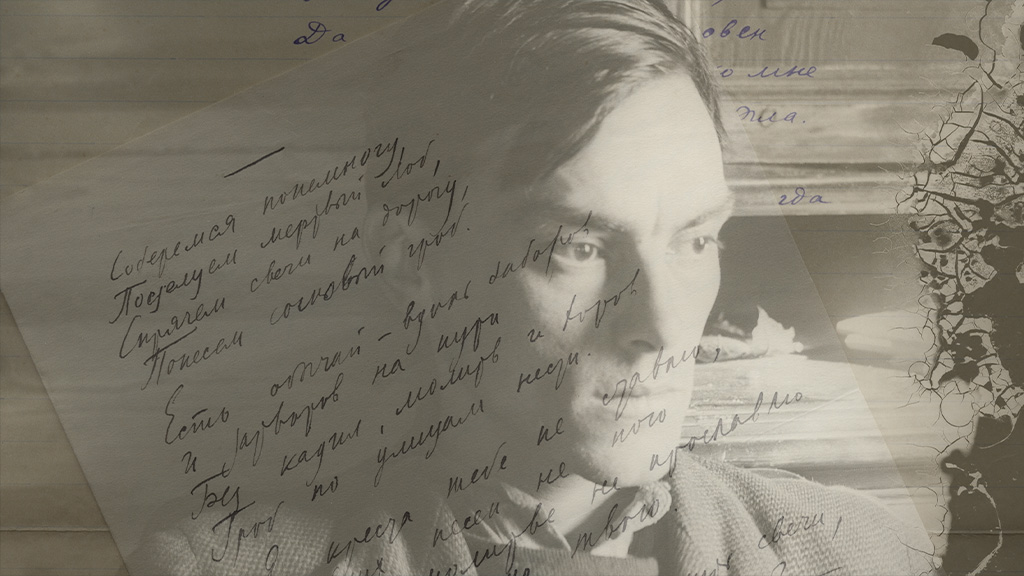 Да
овен
о мне
гда
Соберемся понемногу,
Поцелуем мертвый лоб,
Спрячем свечи на дорогу,
Понесем сосновый гроб.
Есть обычай – вдоль заборов
И затворов на пути
Без кадил, молитв и хоров
Гроб по улицам нести.
Я креста тебе не ставлю,
песен не пою
не прославлю
твою.
свечи,